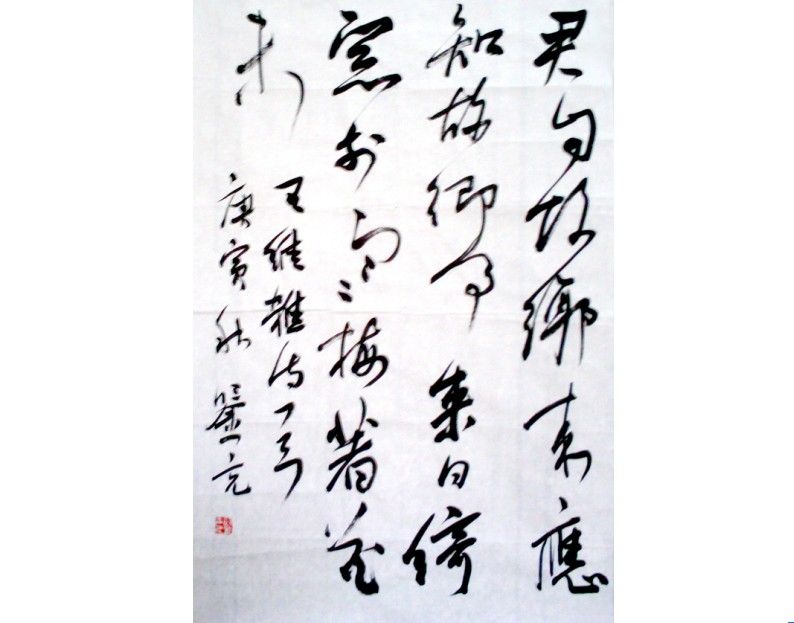 君自故鄉來應
知故鄉事來日綺
窓前寒梅著花
未
王維雜诗一首
庚寅秋 元